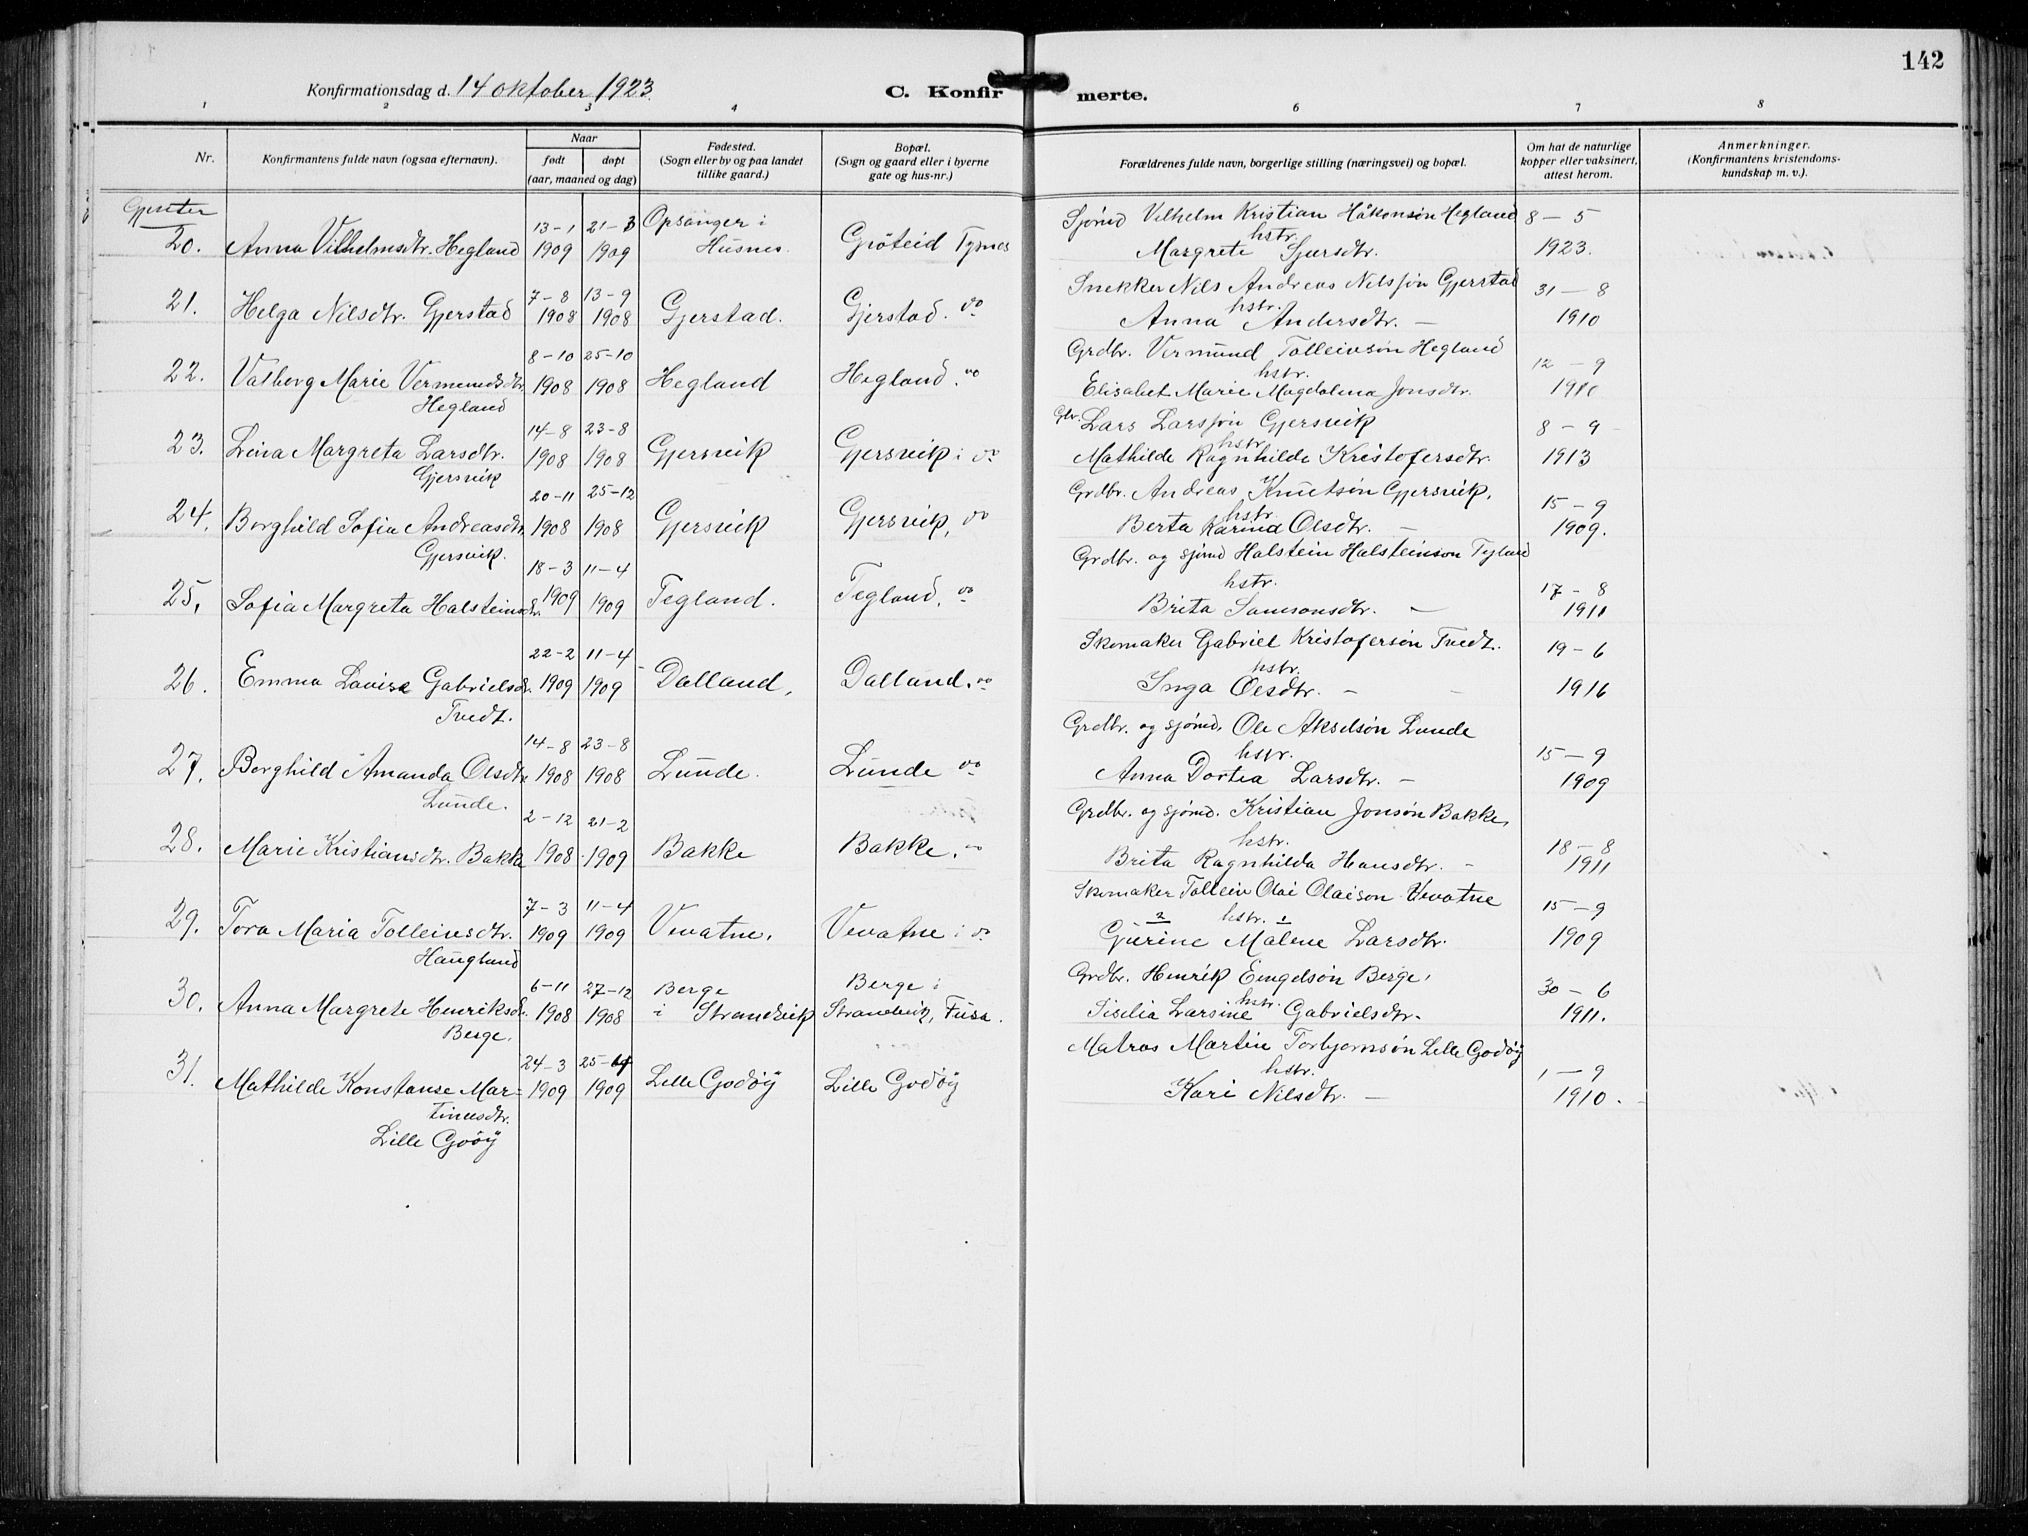 142
Konfirmationsdag d. 14 oktober 1923.
C. Konfirmerte.
1 2 3 4 5 6 7 8
Nr.
Konfirmantens fulde navn (ogsaa efternavn).
Naar
født
døpt
(aar, maaned og dag)
Fødested.
(Sogn eller by og paa landet
tillike gaard.)
Bopæl.
(Sogn og gaard eller i byerne
gate og hus-nr.)
Forældrenes fulde navn, borgerlige stilling (næringsvei) og bopæl.
Om hat de naturlige
kopper eller vaksinert,
attest herom.
Anmerkninger.
(Konfirmantens kristendoms-
kundskap m. v.).
Gjenter
20. Anna Vilhelmsdtr. Hegland 13-1 1909 21-3 1909 Opsanger i Husnes. Tysnes
Sjømd Vilhelm Kristian Håkonsøn Hegland
hstr.
Margrete Sjursdtr.
8-5 1923.
21. Helga Nilsdtr. Gjerstad 7-8 1908 13-9 1908 Gjerstad. Gjerstad. do
Snekker Nils Andreas Nilssøn Gjerstad
hstr.
Anna Andersdtr. —
31-8 1910
22. Valborg Marie Vermundsdtr. 8-10 1908 25-10 1908 Hegland Hegland. do
Hegland
Grdbr. Vermund Tolleivsøn Hegland
hstr.
Elisabet Marie Magdalena Jonsdtr.
12-9 1910
23. Lina Margreta Larsdtr. 14-8 1908 23-8 1908 Gjersvik Gjersvik i do
Gjersvik
Gbr. Lars Larssøn Gjersvik
hstr.
Mathilde Ragnhilde Kristofersdtr.
8-9 1913
24. Borghild Sofia Andreasdtr. 20-11 1908 25-12 1908 Gjersvik Gjersvik, do
Gjersvik.
Grdbr. Andreas Knutsøn Gjersvik,
hstr.
Berta Karina Olsdtr. —
15-9 1909.
25. Sofia Margreta Halsteinsdtr. 18-3 1909 11-4 1909 Tegland. Tegland, do
Grdbr. og sjømd Halstein Halsteinson Tegland
hstr.
Brita Samsonsdtr. —
17-8 1911
26. Emma Lovise Gabrielsdtr. 22-2 1909 11-4 1909 Dalland, Dalland. do
Tvedt.
Skomaker Gabriel Kristofersøn Tvedt.
hstr.
Inga Olsdtr. —
19-6 1916
27. Borghild Amanda Olsdtr 14-8 1908 23-8 1908 Lunde. Lunde do
Lunde.
Grdbr. og sjømd. Ole Akselsøn Lunde
hstr.
Anna Dortea Larsdtr. —
15-9 1909
28. Marie Kristiansdtr. Bakke 2-12 1908 21-2 1909 Bakke Bakke. do
Grdbr. og sjømd. Kristian Jonsøn Bakke,
hstr.
Brita Ragnhilda Hansdtr. —
18-8 1911
29. Tora Maria Tolleivsdtr. 7-3 1909 11-4 1909 Vevatne, Vevatne i do
Haugland
Skomaker Tolleiv Olai Olaison Vevatne
2 hstr. 1
Gurine Malene Larsdtr.
15-9 1909
30. Anna Margrete Henriksdtr. 6-11 1908 27-12 1908 Berge i Strandvik Berge i Strandvik, Fusa.
Berge.
Grdbr. Henrik Engelsøn Berge,
hstr.
Sisilia Larsine Gabrielsdtr.
30-6 1911.
31. Mathilde Konstanse Mar- 24-3 1909 25-4 1909 Lille Godøy Lille Godøy
tinusdtr.
Lille Goøy
Matros Martin Torbjørnsøn Lille Godøy
hstr.
Kari Nilsdtr. —
1-9 1910.